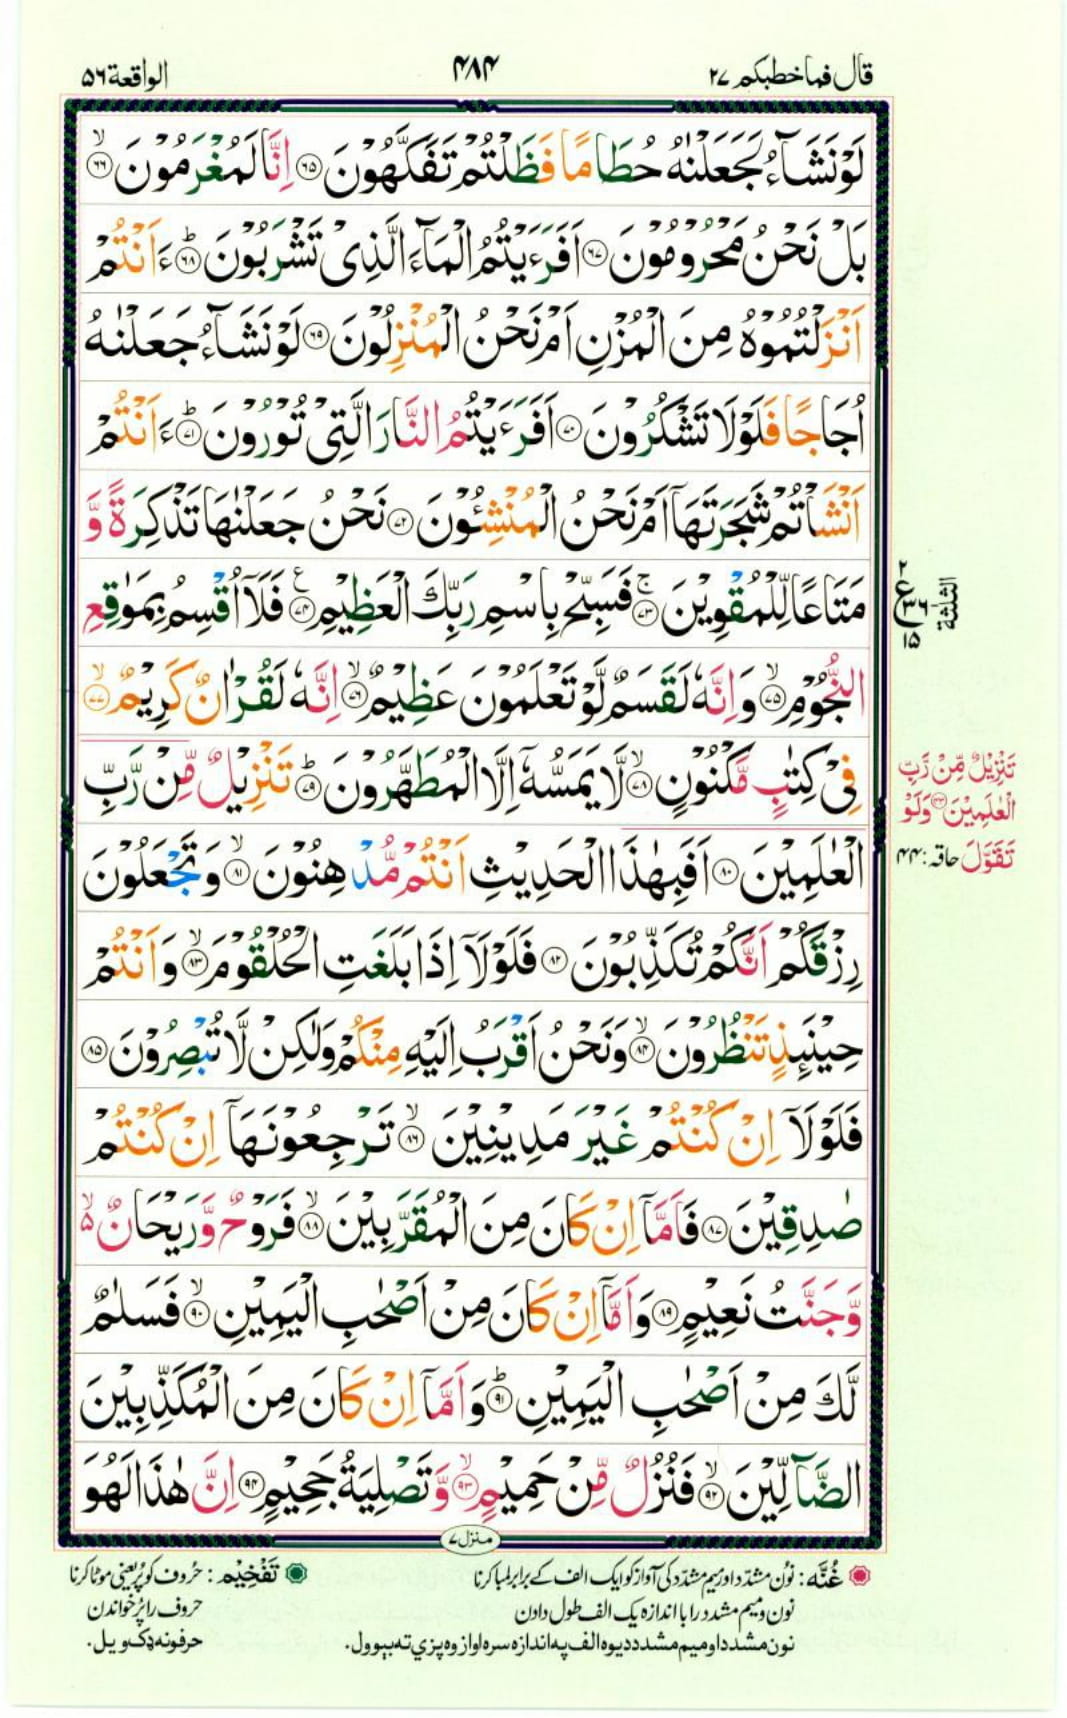 قال فما خطبكم ٢٧
۴۸۴
الواقعة ٥٦
لَوْ نَشَآءُ لَجَعَلْنٰهُ حُطَامًا فَظَلْتُمْ تَفَكَّهُوْنَ ﴿۶۵﴾ اِنَّا لَمُغْرَمُوْنَ ۙ﴿۶۶﴾
بَلْ نَحْنُ مَحْرُوْمُوْنَ ﴿۶۷﴾ اَفَرَءَيْتُمُ الْمَآءَ الَّذِىْ تَشْرَبُوْنَ ؕ﴿۶۸﴾ ءَاَنْتُمْ
اَنْزَلْتُمُوْهُ مِنَ الْمُزْنِ اَمْ نَحْنُ الْمُنْزِلُوْنَ ﴿۶۹﴾ لَوْ نَشَآءُ جَعَلْنٰهُ
اُجَاجًا فَلَوْلَا تَشْكُرُوْنَ ﴿۷۰﴾ اَفَرَءَيْتُمُ النَّارَ الَّتِىْ تُوْرُوْنَ ؕ﴿۷۱﴾ ءَاَنْتُمْ
اَنْشَاْتُمْ شَجَرَتَهَآ اَمْ نَحْنُ الْمُنْشِئُوْنَ ﴿۷۲﴾ نَحْنُ جَعَلْنٰهَا تَذْكِرَةً وَّ
مَتَاعًا لِّلْمُقْوِيْنَ ۚ﴿۷۳﴾ فَسَبِّحْ بِاسْمِ رَبِّكَ الْعَظِيْمِ ﴿۷۴﴾ؒ فَلَآ اُقْسِمُ بِمَوٰقِعِ
النُّجُوْمِ ۙ﴿۷۵﴾ وَاِنَّهٗ لَقَسَمٌ لَّوْ تَعْلَمُوْنَ عَظِيْمٌ ۙ﴿۷۶﴾ اِنَّهٗ لَقُرْاٰنٌ كَرِيْمٌ ۙ﴿۷۷﴾
فِىْ كِتٰبٍ مَّكْنُوْنٍ ۙ﴿۷۸﴾ لَّا يَمَسُّهٗۤ اِلَّا الْمُطَهَّرُوْنَ ؕ﴿۷۹﴾ تَنْزِيْلٌ مِّنْ رَّبِّ
الْعٰلَمِيْنَ ﴿۸۰﴾ اَفَبِهٰذَا الْحَدِيْثِ اَنْتُمْ مُّدْهِنُوْنَ ۙ﴿۸۱﴾ وَتَجْعَلُوْنَ
رِزْقَكُمْ اَنَّكُمْ تُكَذِّبُوْنَ ﴿۸۲﴾ فَلَوْلَاۤ اِذَا بَلَغَتِ الْحُلْقُوْمَ ۙ﴿۸۳﴾ وَاَنْتُمْ
حِيْنَئِذٍ تَنْظُرُوْنَ ۙ﴿۸۴﴾ وَنَحْنُ اَقْرَبُ اِلَيْهِ مِنْكُمْ وَلٰكِنْ لَّا تُبْصِرُوْنَ ﴿۸۵﴾
فَلَوْلَاۤ اِنْ كُنْتُمْ غَيْرَ مَدِيْنِيْنَ ۙ﴿۸۶﴾ تَرْجِعُوْنَهَاۤ اِنْ كُنْتُمْ
صٰدِقِيْنَ ﴿۸۷﴾ فَاَمَّاۤ اِنْ كَانَ مِنَ الْمُقَرَّبِيْنَ ۙ﴿۸۸﴾ فَرَوْحٌ وَّرَيْحَانٌ ۙ۬
وَّجَنَّتُ نَعِيْمٍ ﴿۸۹﴾ وَاَمَّاۤ اِنْ كَانَ مِنْ اَصْحٰبِ الْيَمِيْنِ ۙ﴿۹۰﴾ فَسَلٰمٌ
لَّكَ مِنْ اَصْحٰبِ الْيَمِيْنِ ؕ﴿۹۱﴾ وَاَمَّاۤ اِنْ كَانَ مِنَ الْمُكَذِّبِيْنَ
الضَّآلِّيْنَ ۙ﴿۹۲﴾ فَنُزُلٌ مِّنْ حَمِيْمٍ ۙ﴿۹۳﴾ وَّتَصْلِيَةُ جَحِيْمٍ ﴿۹۴﴾ اِنَّ هٰذَا لَهُوَ
منزل ۷
۲
ع
۳۶
۱۵
الثلثة
تَنْزِيْلٌ مِّنْ رَّبِّ
الْعٰلَمِيْنَ ﴿۴۳﴾ وَلَوْ
تَقَوَّلَ حاقہ: ۴۴
غُنَّه: نُون مشدّد اور میم مشدّد کی آواز کو ایک الف کے برابر لمبا کرنا
نون و میم مشدد را با اندازه یک الف طول دادن
نون مشدد او میم مشدد دیوه الف په اندازه سره اواز وه پزي ته بېوول.
تَفْخِیْم: حُروف کو پُر یعنی موٹا کرنا
حروف را پُر خواندن
حرفونه ډک ویل.